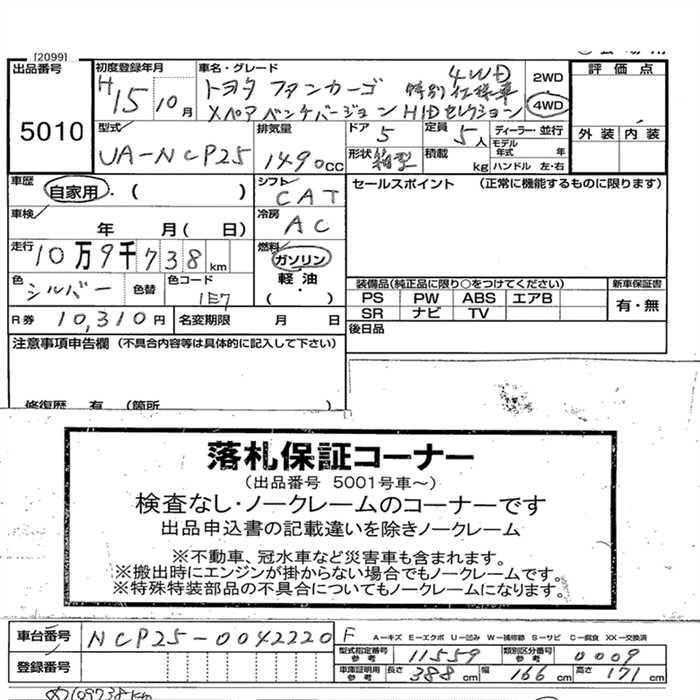 [2099]
出品番号
5010
初度登録年月
H15 10月
車名・グレード
トヨタ ファンカーゴ 特別仕様車 4WD
ペアベンチバージョン HIDセレクション
2WD
4WD
評価点
外装 内装
型式
UA-NCP25
排気量
1490cc
ドア 5
形状 箱型
定員 5人
積載 kg
ディーラー・並行
モデル年式 年
ハンドル 左・右
車歴
自家用・( )
シフト
CAT
車検
年 月( 日)
冷房
AC
走行
10万9千738km
燃料
ガソリン
軽油
・
( )
色
シルバー
色替
色コード
1E7
R券 10,310円
名変期限 月 日
セールスポイント (正常に機能するものに限ります)
装備品(純正品に限り○をつけてください)
PS PW ABS エアB
SR ナビ TV
新車保証書
有・無
後日品
注意事項申告欄(不具合内容等は具体的に記入して下さい)
修復歴 有 (箇所
落札保証コーナー
(出品番号 5001号車~)
検査なし・ノークレームのコーナーです
出品申込書の記載違いを除きノークレーム
※不動車、冠水車など災害車も含まれます。
※搬出時にエンジンが掛からない場合でもノークレームです。
※特殊特装部品の不具合についてもノークレームになります。
車台番号
NCP25-0042220
F
A-キズ E-エクボ U-凹み W-補修跡 S-サビ C-腐食 XX-交換済
登録番号
型式指定番号 参考 11559
類別区分番号 参考 0009
車庫証明用 参考 長さ 388cm 幅 166cm 高さ 171cm